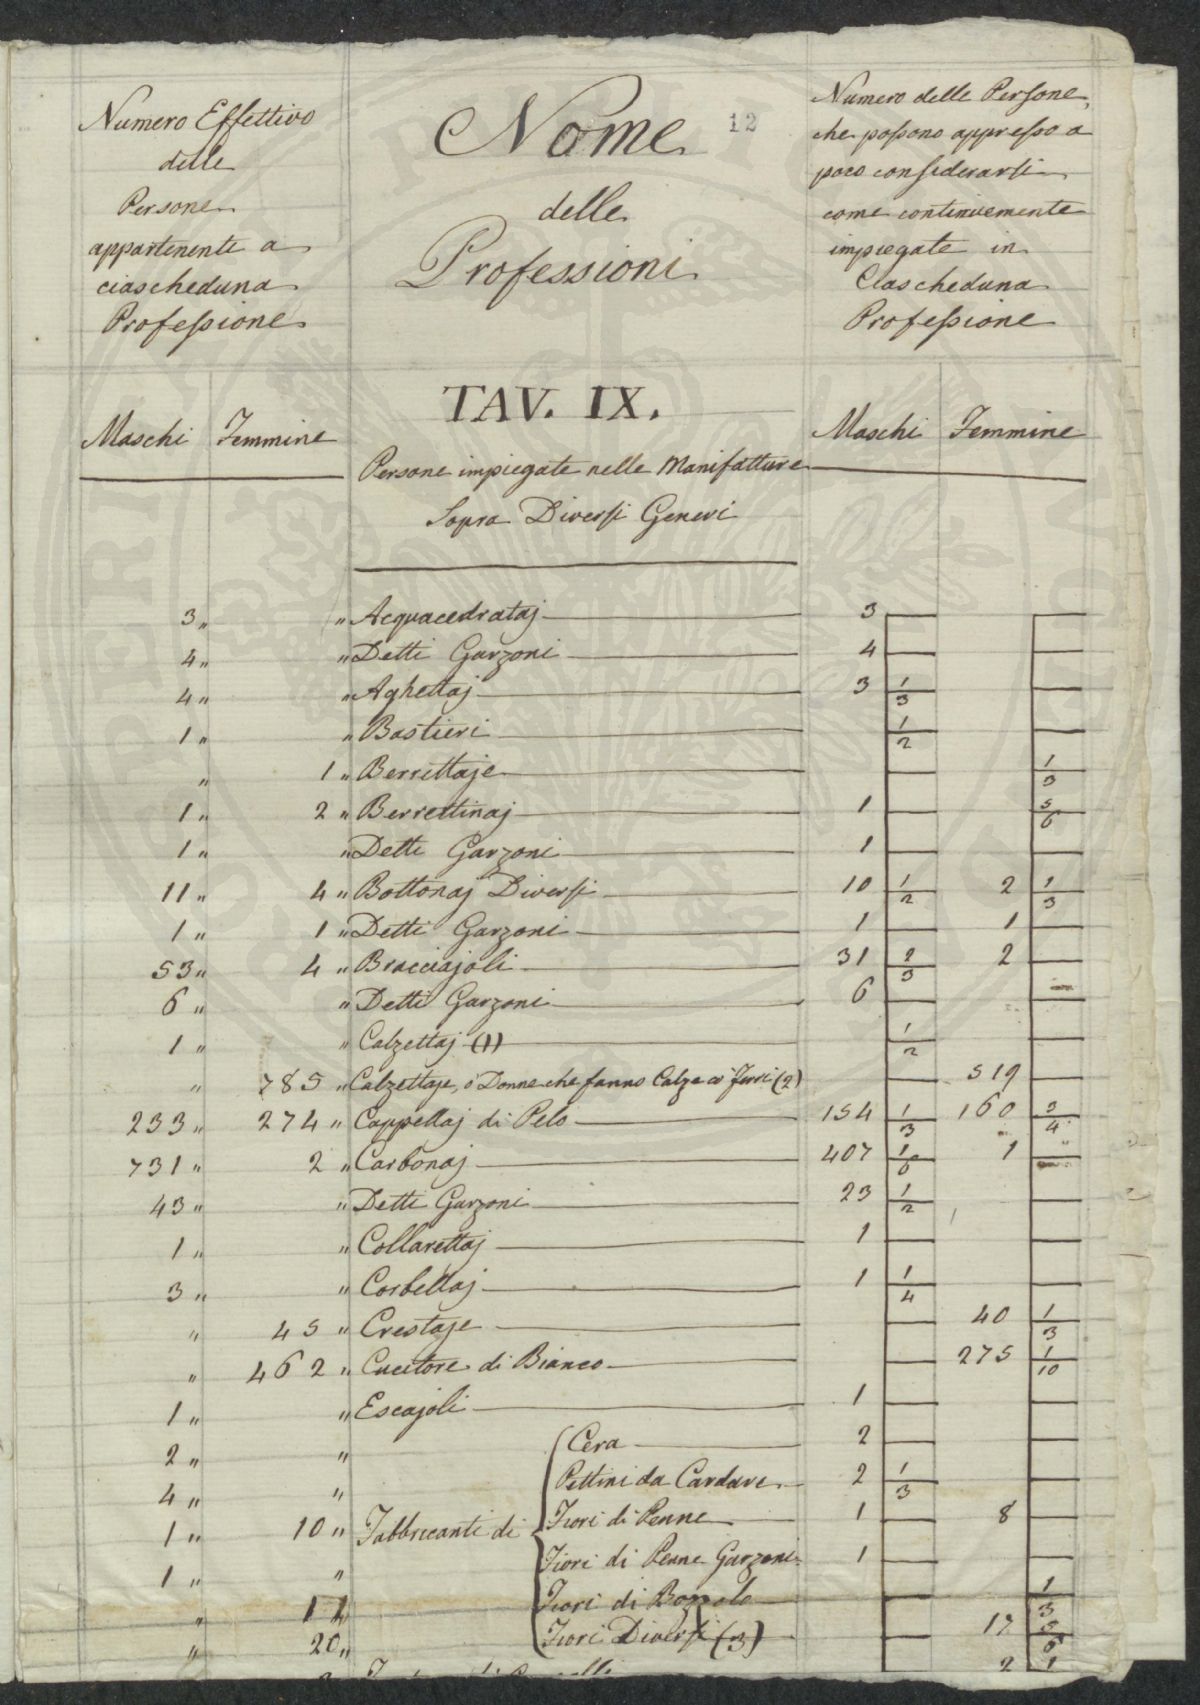 Numero Effettivo
delle
Persone
appartenenti a
ciascheduna
Professione
Nome
delle
Professioni
12
Numero delle Persone,
che possono appresso a
poco considerarsi
come continuemente
impiegate in
Ciascheduna
Professione
TAV. IX.
Maschi Femmine
Persone impiegate nelle Manifatture
Sopra Diversi Generi
Maschi Femmine
3 " " Acquacedrataj 3
4 " " Detti Garzoni 4
4 " " Aghettaj 3 1/3
1 " " Bastieri 1/2
" 1 " Berrettaje 1/3
1 " 2 " Berrettinaj 1 5/6
1 " " Detti Garzoni 1
11 " 4 " Bottonaj Diversi 10 1/2 2 1/3
1 " 1 " Detti Garzoni 1 1
53 " 4 " Bracciajoli 31 2/3 2
6 " " Detti Garzoni 6
1 " " Calzettaj (1) 1/2
" 785 " Calzettaje, o Donne che fanno Calze a' Ferri (2) 519
233 " 274 " Cappellaj di Pelo 154 1/3 160 3/4
731 " 2 " Carbonaj 407 1/6 1
43 " " Detti Garzoni 23 1/2
1 " " Collarettaj 1
3 " " Corbellaj 1 1/4
" 45 " Crestaje 40 1/3
" 462 " Cucitore di Bianco 275 1/10
1 " " Escajoli 1
2 " " Cera 2
4 " " Pettini da Cardare 2 1/3
1 " 10 " Fabbricanti di Fiori di Penne 1 8
1 " " Fiori di Penne Garzoni 1
" 1 Fiori di Bozzolo 1/3
" 20 " Fiori Diversi (3) 17 5/6
2 1